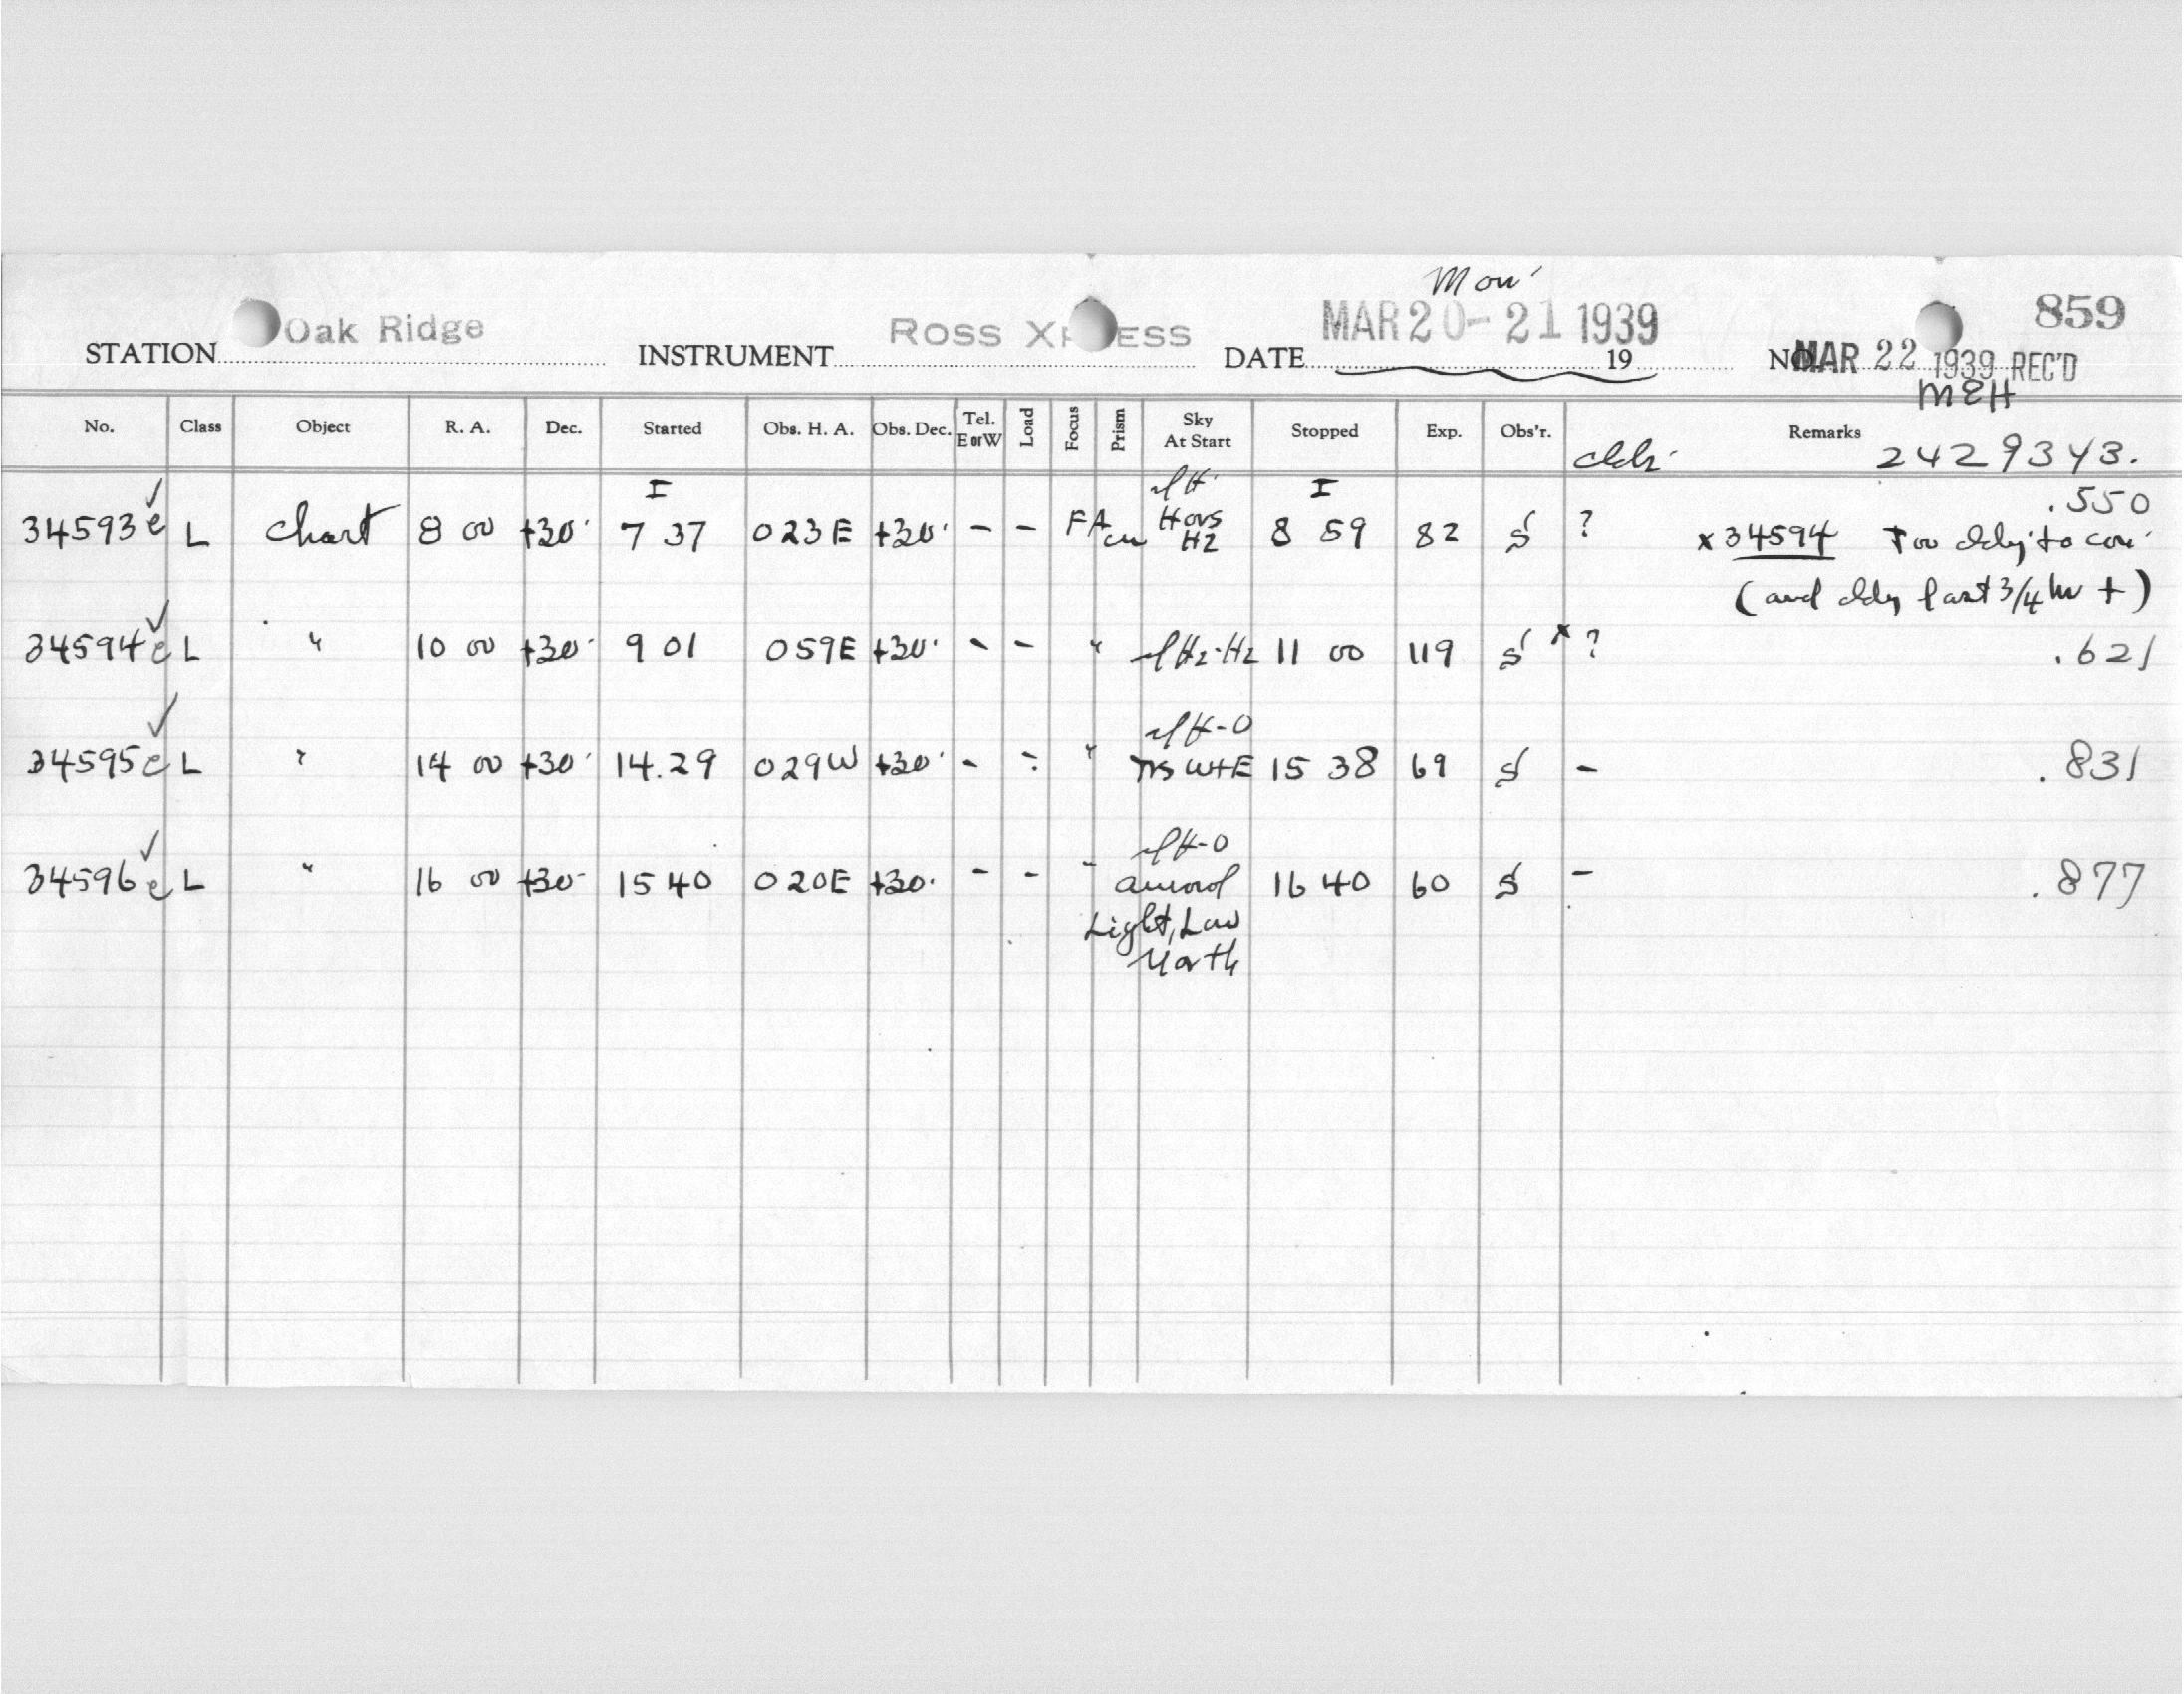 Mon'
STATION Oak Ridge INSTRUMENT ROSS XPRESS DATE MAR 20-21 1939 19 NO. 859
MAR 22 1939 REC'D
MEH
No. Class Object R. A. Dec. Started Obs. H. A. Obs. Dec. Tel. E or W Load Focus Prism Sky At Start Stopped Exp. Obs'r. Remarks
2429343.
I I .550
34593 e L Chart 8 00 +30 7 37 023E +30 - - FA H2 8 59 82 S ? x 34594 Too cldy to con
(and cldy last 3/4 hr +)
34594 e L " 10 00 +30 9 01 059E +30 - - " 11 00 119 S x ? .621
34595 e L " 14 00 +30 14.29 029W +30 - - " W+E 15 38 69 S - .831
34596 e L " 16 00 +30 15 40 020E +30 - - " auroral 16 40 60 S - .877
Light, Low
North